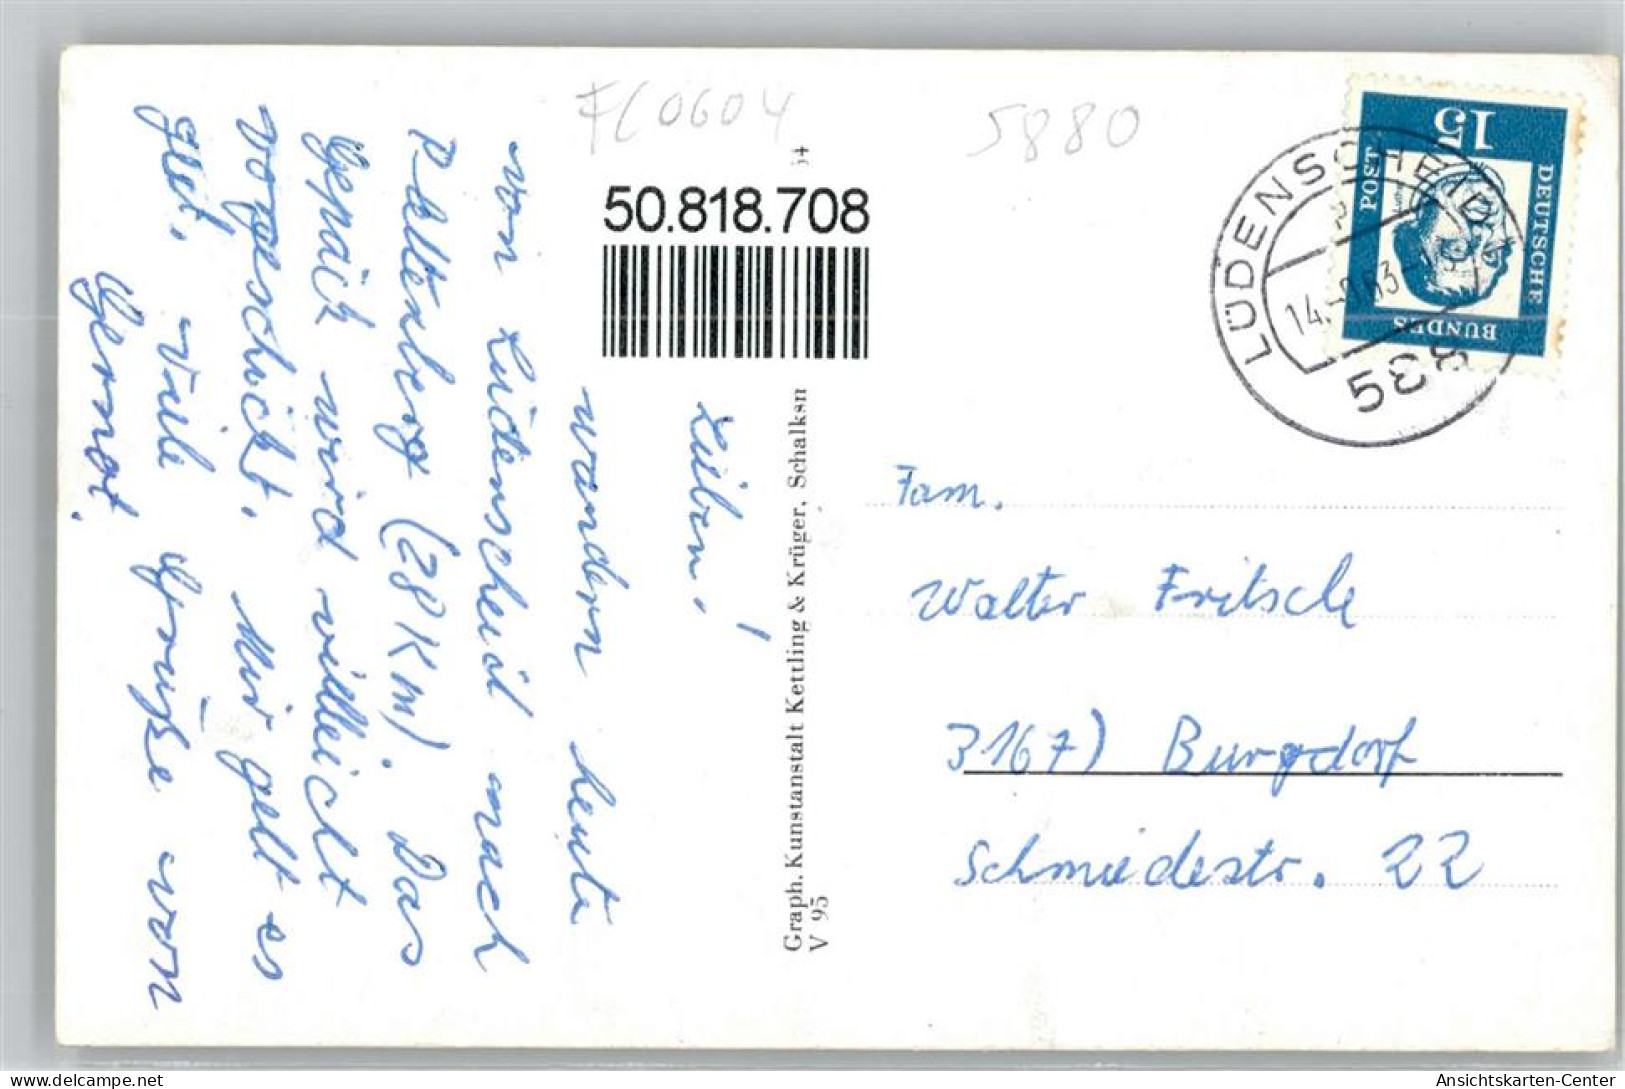 FC0604
5880
50.818.708
54
Lieben!
wandern heute
von Lüdenscheid nach
Plettenberg (28 Km). Das
Gepäck wird vielleicht
vorgeschickt. Mir geht es
gut. Viele Grüße von
Gernot.
Graph. Kunstanstalt Kettling & Krüger, Schalksm
V 95
DEUTSCHE
BUNDES
POST
15
LÜDENSCHEID
588
Fam.
Walter Fritsche
3167) Burgdorf
Schmiedestr. 22
Ansichtskarten-Center